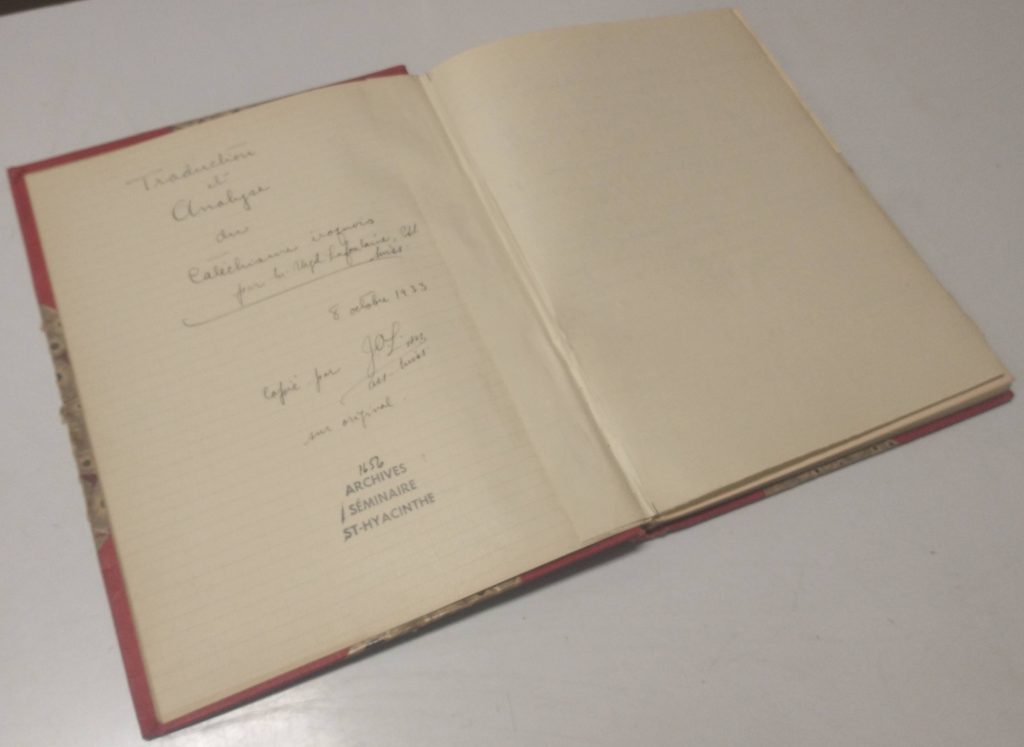 Traduction
et
Analyse
du
Catéchisme iroquois
par L. Ugd Lafontaine,
8 octobre 1933
Copié par
sur original
1656
ARCHIVES
SÉMINAIRE
ST-HYACINTHE